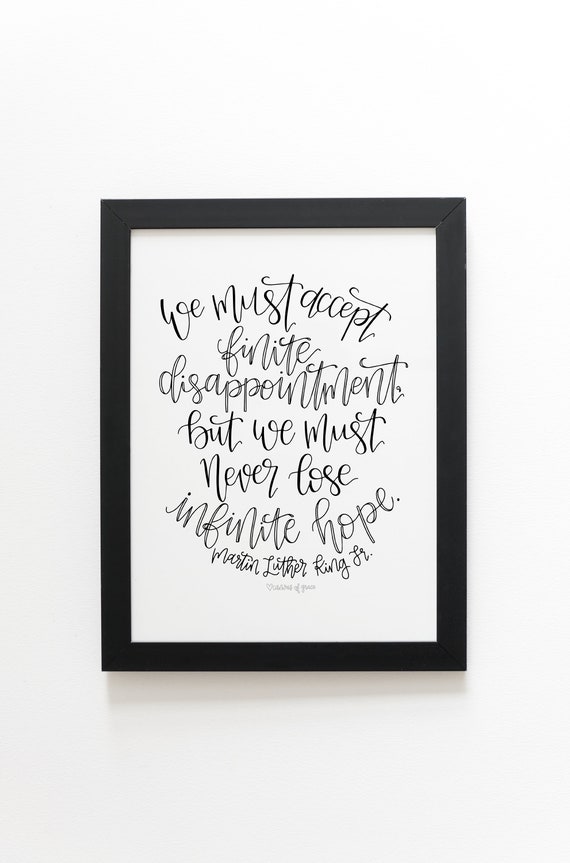 we must accept
finite
disappointment,
but we must
never lose
infinite hope.
Martin Luther King Jr.
of grace